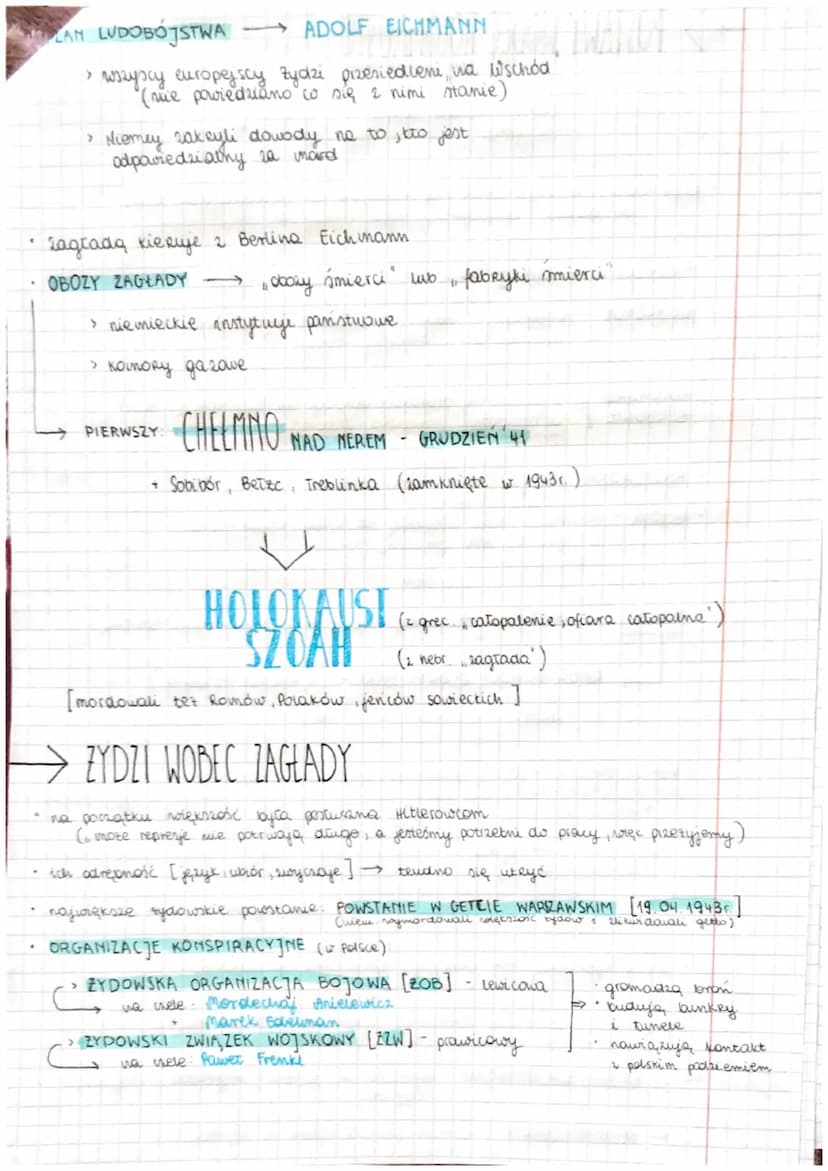 PLAN LUDOBÓJSTWA → ADOLF EICHMANN
> wszyscy europejscy żydzi przesiedleni „na Wschód
(nie powiedziano co się z nimi stanie)
> Niemcy zakryli dowody na to, kto jest
odpowiedzialny za mord
• zagładą kieruje z Berlina Eichmann
• OBOZY ZAGŁADY → „obozy śmierci" lub „fabryki śmierci"
> niemieckie instytucje państwowe
> komory gazowe
→ PIERWSZY: CHEŁMNO NAD NEREM - GRUDZIEŃ '41
+ Sobibór, Bełżc, Treblinka (zamknięte w 1943r.)
HOLOKAUST (z grec. „całopalenie, ofiara całopalna")
SZOAH (z hebr. „zagłada")
[mordowali też Romów, Polaków, jeńców sowieckich]
→ ŻYDZI WOBEC ZAGŁADY
• na początku większość była posłuszna Hitlerowcom
(„może represje nie potrwają długo, a jesteśmy potrzebni do pracy, więc przeżyjemy)
• ich odrębność [język, ubiór, zwyczaje] → trudno się ukryć
• największe żydowskie powstanie: POWSTANIE W GETCIE WARSZAWSKIM [19.04.1943r.]
(Niem. wymordowali większość żydów i zlikwidowali getto)
• ORGANIZACJE KONSPIRACYJNE (w Polsce)
> ŻYDOWSKA ORGANIZACJA BOJOWA [ŻOB] - lewicowa
→ na czele: Mordechaj Anielewicz
+ Marek Edelman
> ŻYDOWSKI ZWIĄZEK WOJSKOWY [ŻZW] - prawicowy
→ na czele: Paweł Frenkl
⇒ • gromadzą broń
• budują bunkry
i tunele
• nawiązują kontakt
z polskim podziemiem